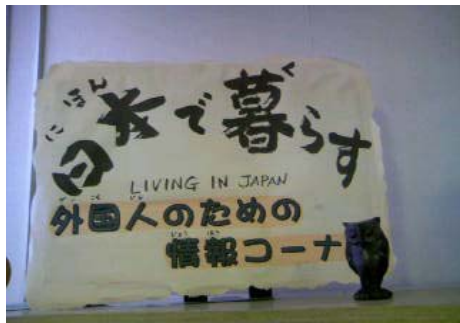 にほん く
日本で暮らす
LIVING IN JAPAN
がいこくじん
外国人のための
じょうほう
情報コーナ